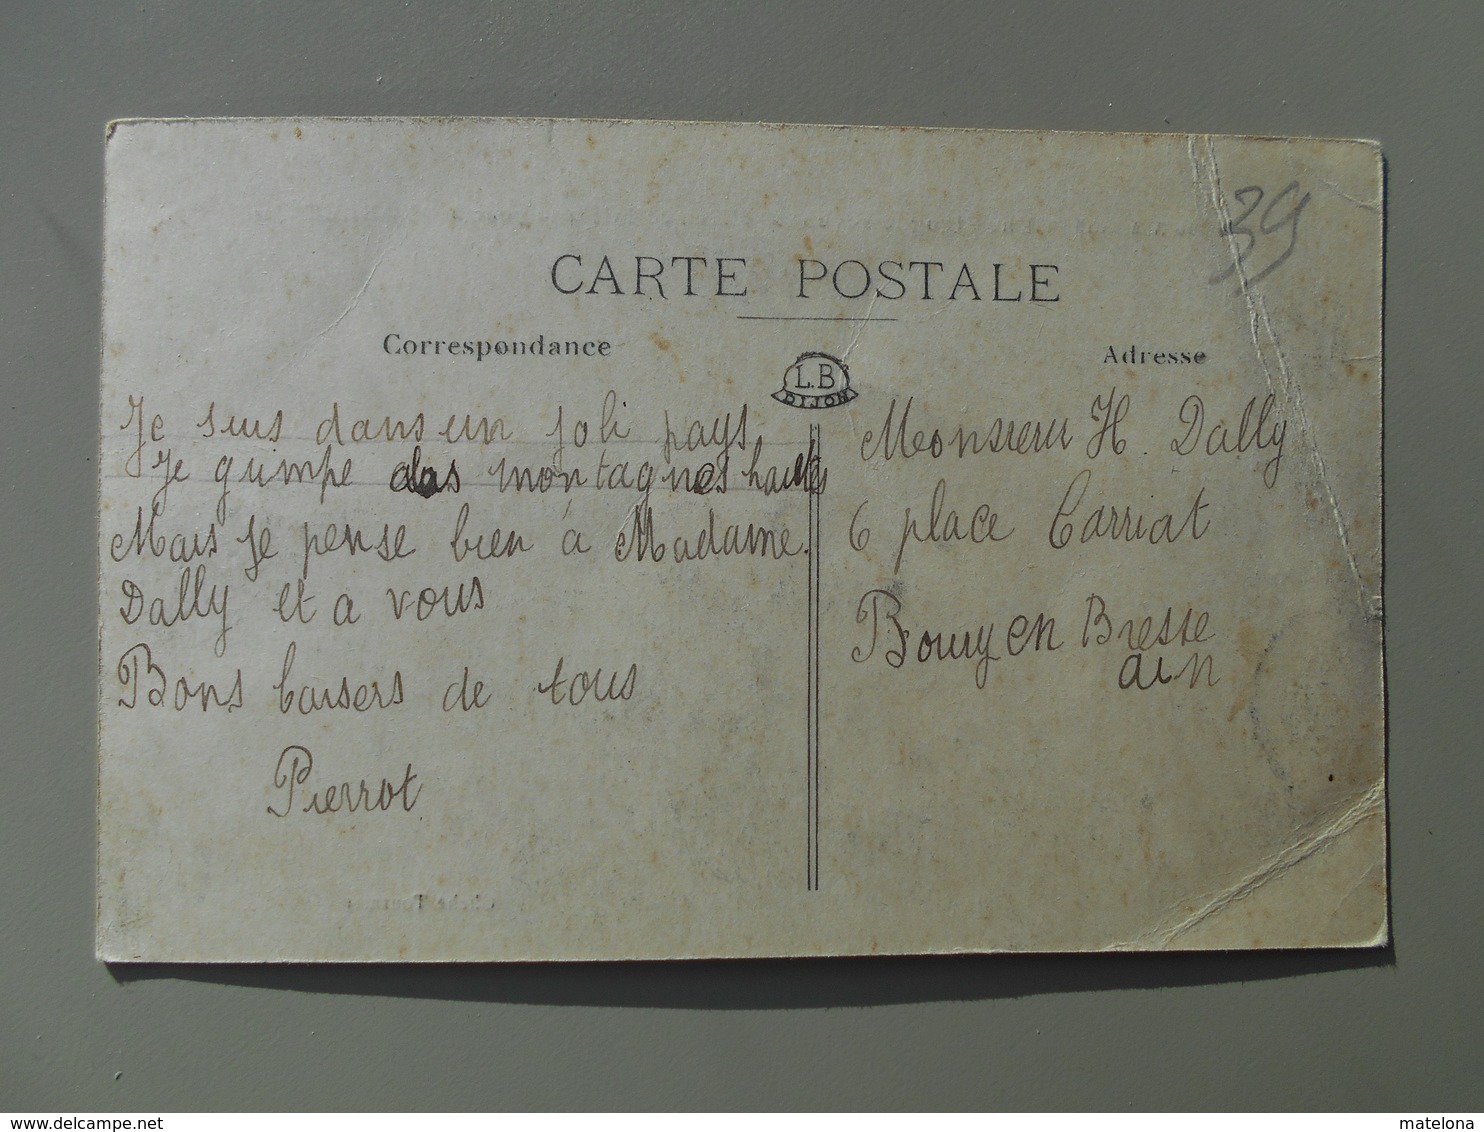 39
CARTE POSTALE
Correspondance
Adresse
L.B
DIJON
Je suis dans un joli pays
je guimpe des montagnes hautes
Mais je pense bien à Madame
Dally et a vous
Bons baisers de tous
Pierrot
Monsieur H. Dally
6 place Carriat
Bourg en Bresse
ain
delcampe.net
matelona